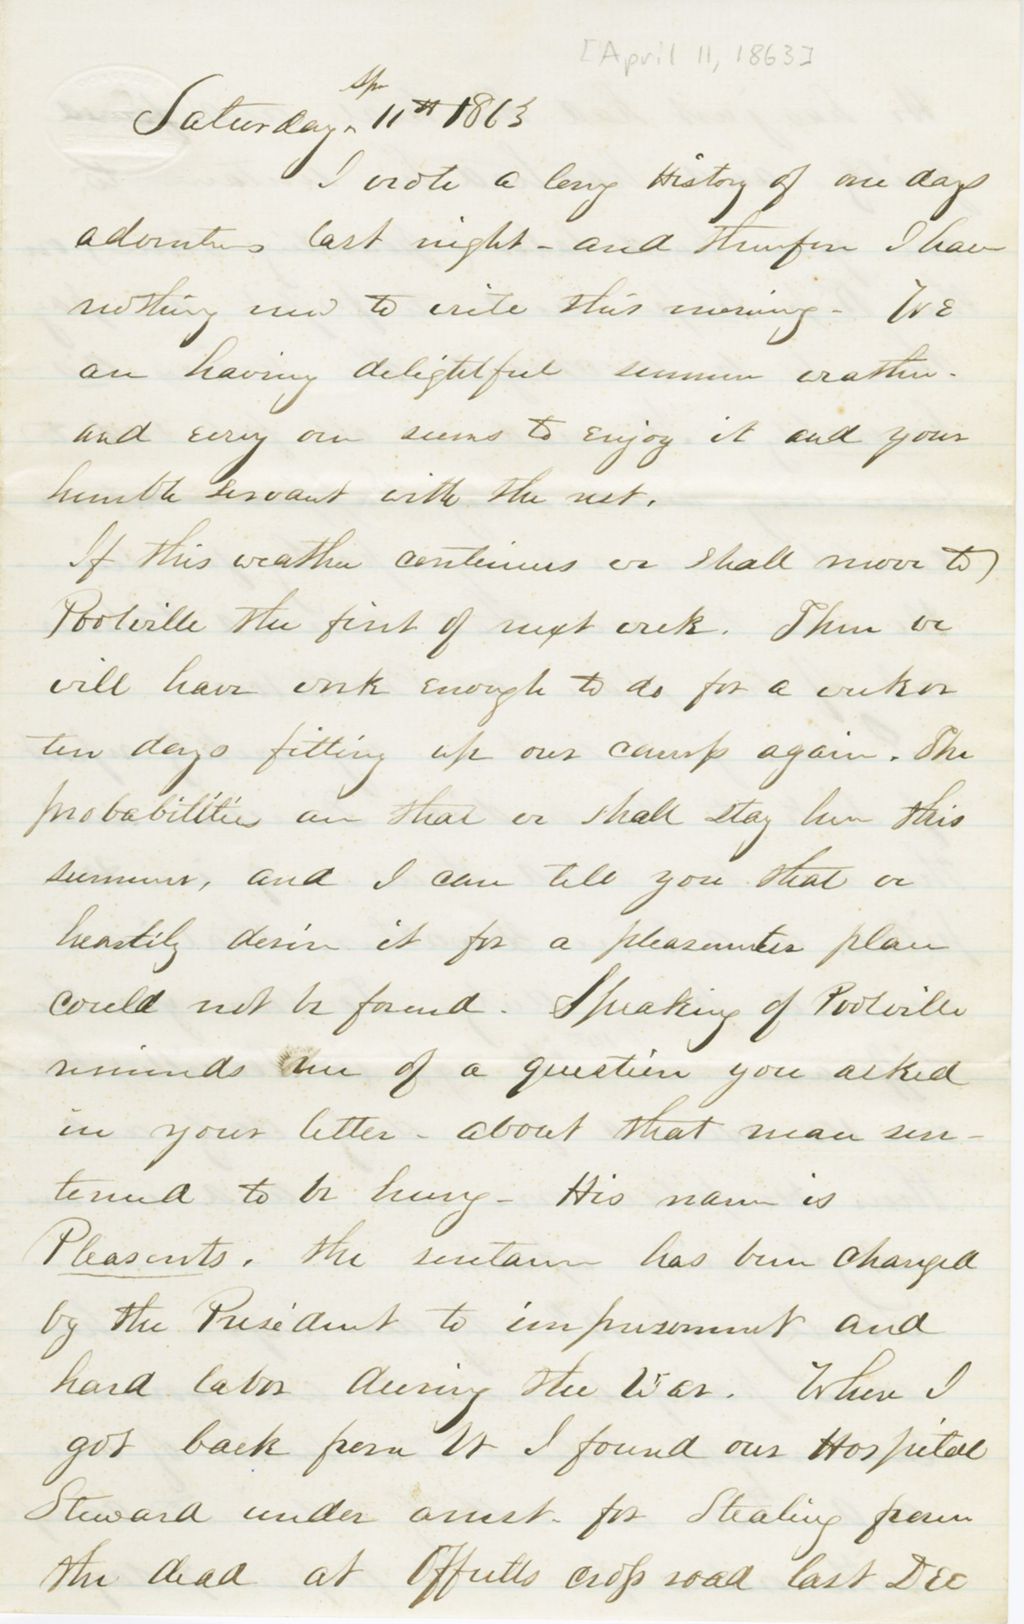 [April 11, 1863]
Saturday, Ap 11th 1863
I wrote a long History of one days
adventures last night - and therefore I have
nothing new to write this morning - We
are having delightful summer weather.
and every one seems to enjoy it and your
humble servant with the rest.
If this weather continues we shall move to
Poolville the first of next week. Then we
will have work enough to do for a week or
ten days fitting up our camp again. The
probabilities are that we shall stay here this
summer, and I can tell you that we
heartily desire it for a pleasanter place
could not be found. Speaking of Poolville
reminds me of a question you asked
in your letter - about that man sen-
tenced to be hung - His name is
Pleasents. The sentance has been changed
by the President to imprisonment and
hard labor during the War. When I
got back from Vt I found our Hospital
Steward under arrest - for Stealing from
the dead at Offutts cross road last Dec